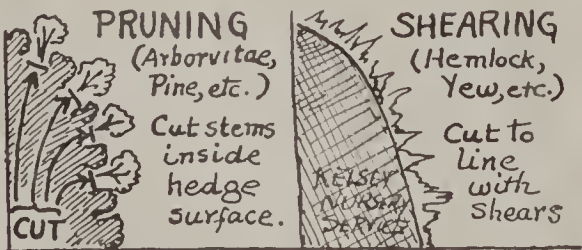 PRUNING
(Arborvitae,
Pine, etc.)
Cut stems
inside
hedge
surface.
CUT
SHEARING
(Hemlock,
Yew, etc.)
Cut to
line
with
shears
KELSEY
NURSERY
SERVICE